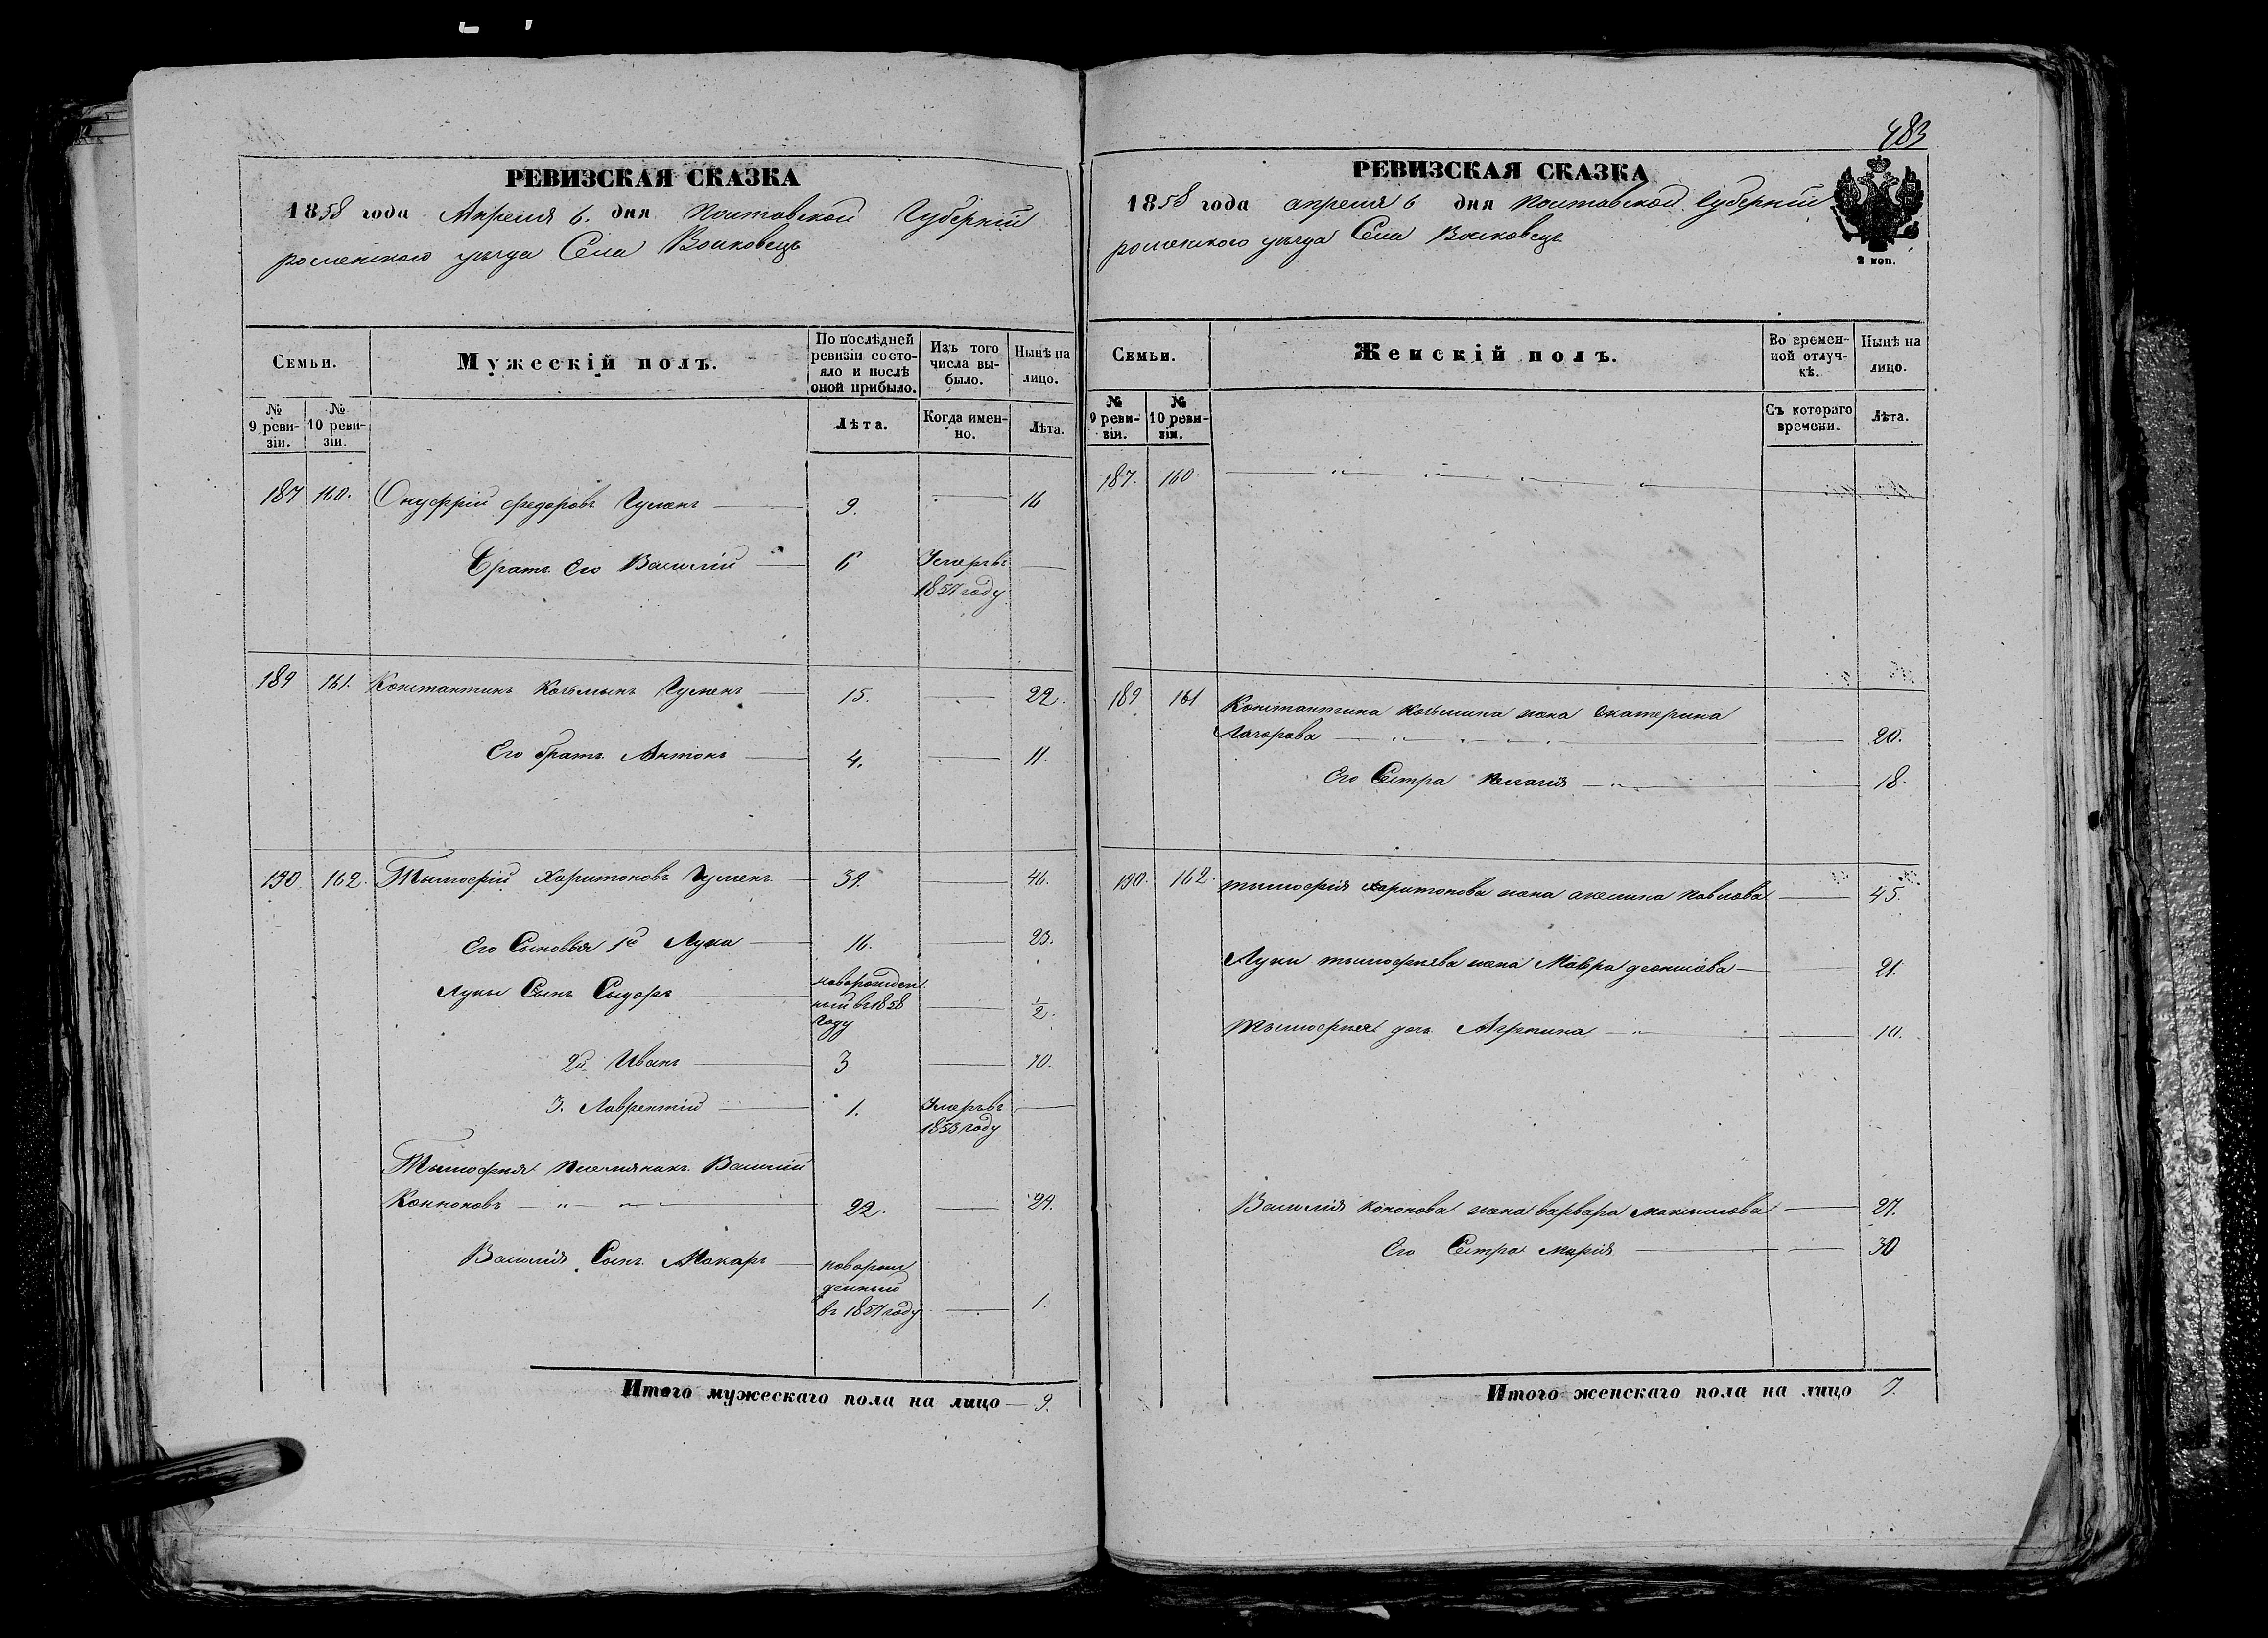 РЕВИЗСКАЯ СКАЗКА
1858 года Апреля 6. дня Полтавской Губерніи
роменского уѣзда Села Волковецъ
Семьи.
Мужескій полъ.
По послѣдней ревизіи состояло и послѣ оной прибыло.
Изъ того числа выбыло.
Нынѣ на лицо.
№ 9 ревизіи.
№ 10 ревизіи.
Лѣта.
Когда именно.
Лѣта.
187 160. Онуфрій Федоровъ Гуменъ — 9. — 16
Братъ его Василій — 6 Умеръ въ —
1857 году
189 161. Константинъ Козьминъ Гуменъ — 15. — 22.
Его братъ Антонъ — 4. — 11.
190. 162. Тымофій Харитоновъ Гуменъ — 39. — 46.
Его Сыновья 1й Лука — 16. — 23.
Луки Сынъ Сыдоръ — новорожден
ный въ 1858 — 1/2.
году
2й Иванъ — 3 — 10.
3. Лаврентій — 1. Умеръ въ —
1853 году
Тымофия племяникъ Василій
Кононовъ — " — " — 22. — 29.
Василія Сынъ Макаръ — новорож
денный
въ 1857 году — 1.
Итого мужескаго пола на лицо — 9.
483
РЕВИЗСКАЯ СКАЗКА
1858 года апреля 6 дня Полтавской Губерніи
роменского уѣзда Села Волковецъ
2 коп.
Семьи.
Женскій полъ.
Во временной отлучкѣ.
Нынѣ на лицо.
№ 9 ревизіи.
№ 10 ревизіи.
Съ котораго времени.
Лѣта.
187. 160. — " — " —
189 161 Константина Козьмина жена Екатерина
Лазорева — " — 20.
Его Сестра Пелагія — " — 18.
190. 162. тымофія Харитонова жена акелина Павлова — 45.
Луки тымофиева жена Мавра — 21.
Тымофия дочь Агрепина — " — 10.
Василія Кононова жена варвара максимова — 27.
Его Сестра Марія — 30
Итого женскаго пола на лицо 7.